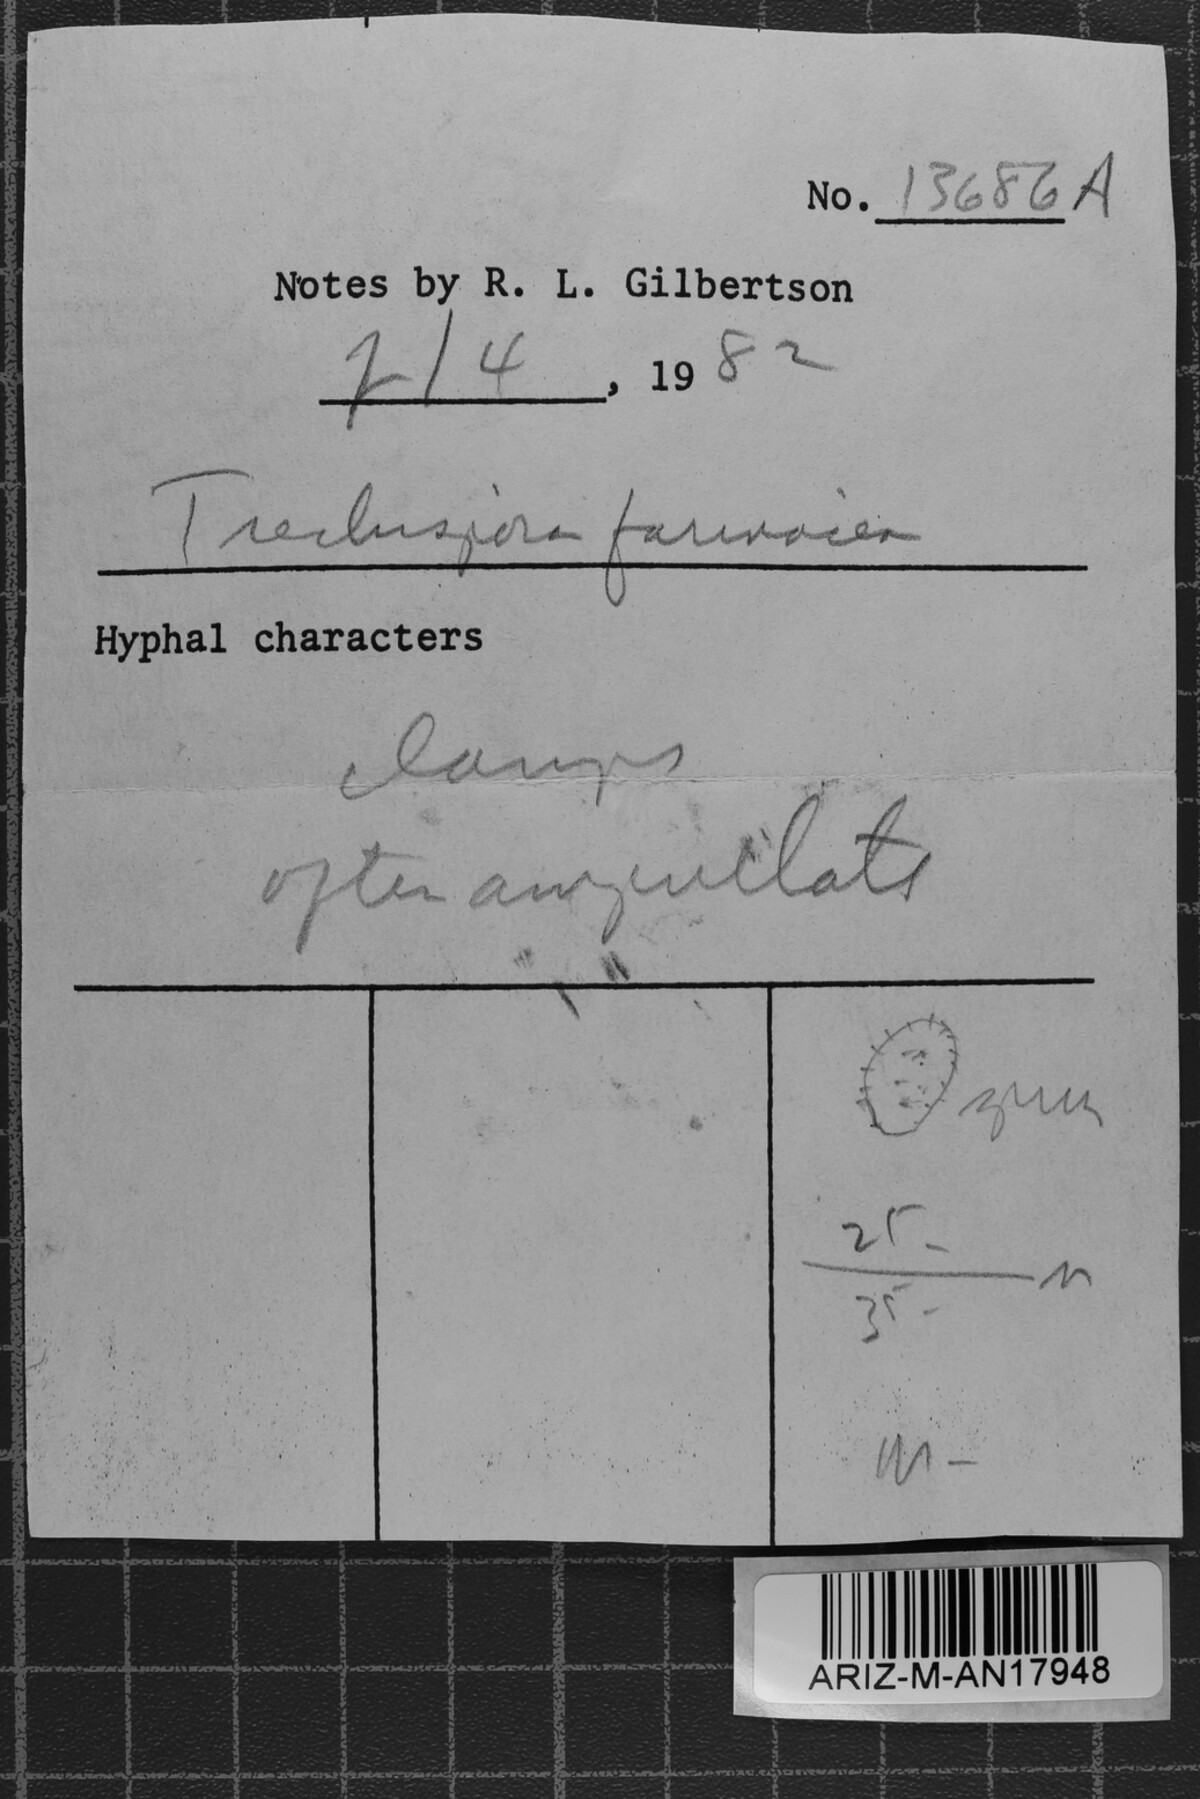 No. 13686 A
Notes by R. L. Gilbertson
2/4, 1982
Trechispora farinacea
Hyphal characters
clamps
often ampullate
25 -
35 -
M -
ARIZ-M-AN17948